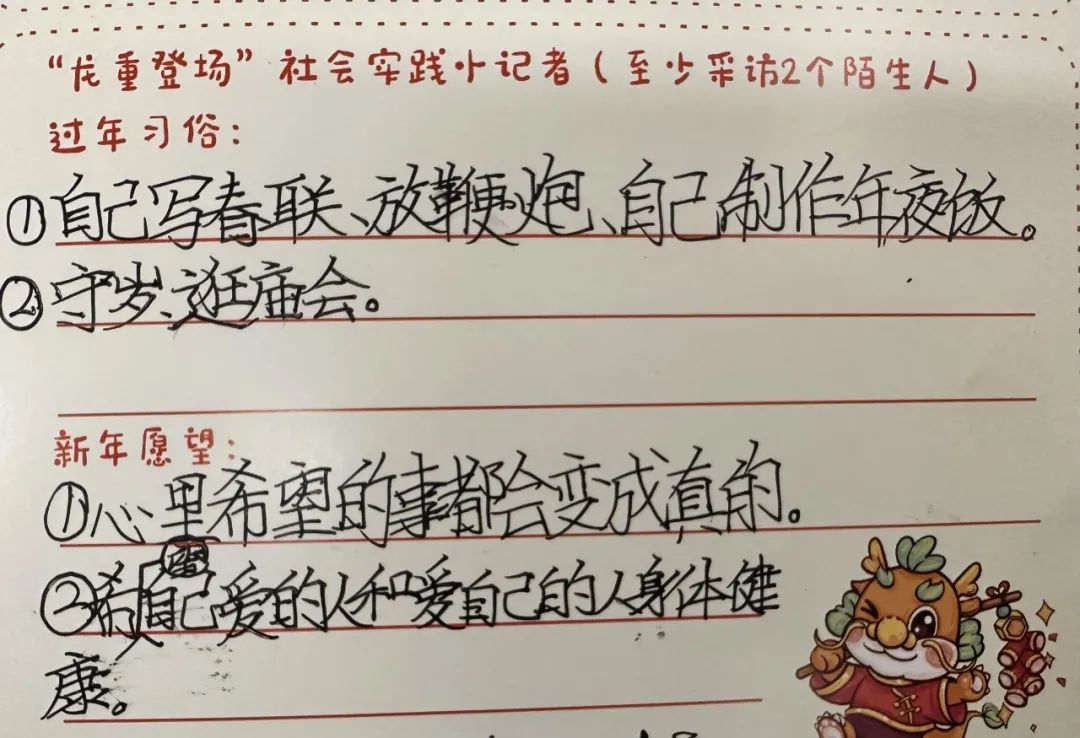 “龙重登场”社会实践小记者（至少采访2个陌生人）
过年习俗：
①自己写春联、放鞭炮、自己制作年夜饭。
②守岁、逛庙会。
新年愿望：
①心里希望的事都会变成真的。
②希望自己爱的人和爱自己的人身体健
康。